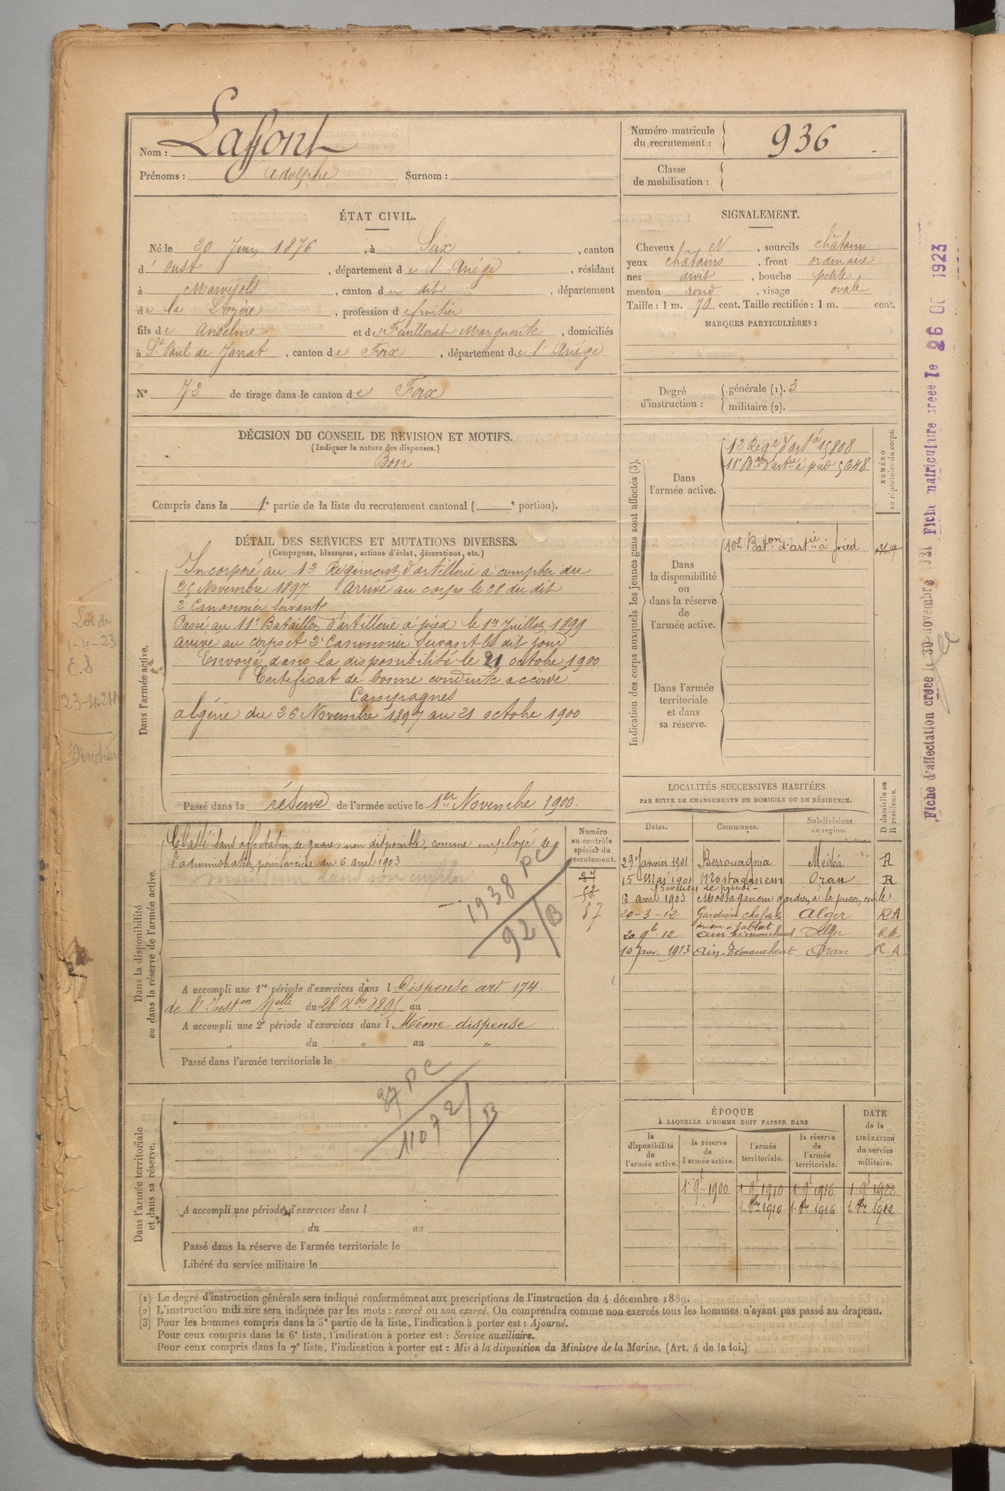 Nom : Laffont
Prénoms : Adolphe Surnom :
Numéro matricule du recrutement : 936
Classe de mobilisation :
ÉTAT CIVIL.
Né le 20 Juin 1876, à Seix, canton
d'Oust, département de l'Ariège, résidant
à Marvejols, canton du dit, département
de la Lozère, profession de fruitier
fils de Anselme et de Feuillerat Marguerite, domiciliés
à St Paul de Jarrat, canton de Foix, département de l'Ariège
N° 73 de tirage dans le canton de Foix
SIGNALEMENT.
Cheveux N, sourcils châtains
yeux châtains, front ordinaire
nez droit, bouche petite
menton rond, visage ovale
Taille : 1 m. 70 cent. Taille rectifiée : 1 m. cent.
MARQUES PARTICULIÈRES :
Degré d'instruction : générale (1). 3
militaire (2).
DÉCISION DU CONSEIL DE REVISION ET MOTIFS.
(Indiquer la nature des dispenses.)
Bon
Compris dans la 1e partie de la liste du recrutement cantonal ( e portion).
DÉTAIL DES SERVICES ET MUTATIONS DIVERSES.
(Campagnes, blessures, actions d'éclat, décorations, etc.)
Dans l'armée active.
Incorporé au 13 Régiment d'artillerie à compter du
25 Novembre 1897 Arrivé au corps le 28 du dit
2e Canonnier servant
Passé au 11e Bataillon d'artillerie à pied le 1er Juillet 1899
arrivé au corps et 2e Canonnier Servant le dit jour
Envoyé dans la disponibilité le 21 octobre 1900
Certificat de bonne conduite accordé
Campagnes
Algérie du 26 Novembre 1897 au 21 octobre 1900
Passé dans la réserve de l'armée active le 1er Novembre 1900.
Indication des corps auxquels les jeunes gens sont affectés (3).
NUMÉRO au répertoire du corps.
Dans l'armée active.
13 Régt d'artie 15808
11e Bon d'artie à pied 5648
Dans la disponibilité ou dans la réserve de l'armée active.
10e Baton d'artie à pied
Dans l'armée territoriale et dans sa réserve.
Dans la disponibilité ou dans la réserve de l'armée active.
Classé sans affectation
non disponible, comme employé de
l'administration pénitentiaire du 6 avril 1903
maintenu dans son emploi
1938 PC
92/B
Numéro au contrôle spécial du recrutement.
87
A accompli une 1re période d'exercices dans l Dispensé art 174
de l'Inston Melle du 28 Xbre 1895 au
A accompli une 2e période d'exercices dans l Même dispense
du " au "
Passé dans l'armée territoriale le
LOCALITÉS SUCCESSIVES HABITÉES
PAR SUITE DE CHANGEMENTS DE DOMICILE OU DE RÉSIDENCE.
Dates. Communes. Subdivisions de région. D domicile ou R résidence.
29 Janvier 1901 Berrouaghia Médéa R
15 Mai 1901 Mostaganem Oran R
6 avril 1903 Mostaganem gardien à la prison civile
20-3-12 Gardien chef Alger RA
20 9b 12 Alger RA
10 Janv. 1913 Aïn-Témouchent Oran RA
Dans l'armée territoriale et dans sa réserve.
37 PC
11072/B
A accompli une période d'exercices dans l
du au
Passé dans la réserve de l'armée territoriale le
Libéré du service militaire le
ÉPOQUE À LAQUELLE L'HOMME DOIT PASSER DANS
la disponibilité de l'armée active. la réserve de l'armée active. l'armée territoriale. la réserve de l'armée territoriale. DATE de la LIBÉRATION du service militaire.
1 9b 1900 1 9b 1910 1 9b 1916
1910 1916
(1) Le degré d'instruction générale sera indiqué conformément aux prescriptions de l'instruction du 4 décembre 1889.
(2) L'instruction militaire sera indiquée par les mots : exercé ou non exercé. On comprendra comme non exercés tous les hommes n'ayant pas passé au drapeau.
(3) Pour les hommes compris dans la 5e partie de la liste, l'indication à porter est : Ajourné.
Pour ceux compris dans la 6e liste, l'indication à porter est : Service auxiliaire.
Pour ceux compris dans la 7e liste, l'indication à porter est : Mis à la disposition du Ministre de la Marine. (Art. 4 de la loi.)
Loi du
1-4-23
Fiche d'affectation créée 30 novembre
Fiche matriculaire créée le 26 1923